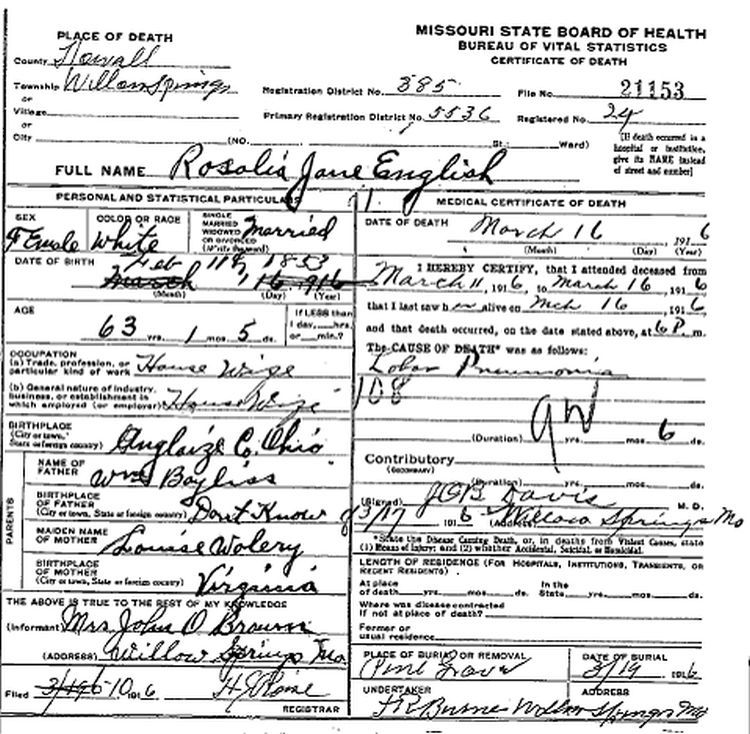 MISSOURI STATE BOARD OF HEALTH
BUREAU OF VITAL STATISTICS
CERTIFICATE OF DEATH
PLACE OF DEATH
County Howall
Township Willow Springs
or
Village
or
City (NO. St.; Ward)
Registration District No. 385 File No. 21153
Primary Registration District No. 5536 Registered No. 24
(If death occurred in a hospital or institution, give its NAME instead of street and number)
FULL NAME Rosalia Jane English
PERSONAL AND STATISTICAL PARTICULARS
SEX Female
COLOR OR RACE White
SINGLE MARRIED WIDOWED OR DIVORCED (Write the word) Married
DATE OF BIRTH Feb 11th 1853
March 16 1916
(Month) (Day) (Year)
AGE 63 yrs. 1 mos. 5 ds.
If LESS than 1 day, hrs. or min.?
OCCUPATION
(a) Trade, profession, or particular kind of work House Wife
(b) General nature of industry, business, or establishment in which employed (or employer) House Wife
BIRTHPLACE (City or town, State or foreign country) Auglaize Co. Ohio
PARENTS
NAME OF FATHER Wm Bayliss
BIRTHPLACE OF FATHER (City or town, State or foreign country) Don't Know
MAIDEN NAME OF MOTHER Louise Wolery
BIRTHPLACE OF MOTHER (City or town, State or foreign country) Virginia
THE ABOVE IS TRUE TO THE BEST OF MY KNOWLEDGE
(Informant) Mrs John O Brown
(ADDRESS) Willow Springs Mo.
Filed 10 1916
REGISTRAR
MEDICAL CERTIFICATE OF DEATH
DATE OF DEATH March 16 1916
(Month) (Day) (Year)
I HEREBY CERTIFY, that I attended deceased from
March 11, 1916, to March 16 1916
that I last saw her alive on Mch 16 1916,
and that death occurred, on the date stated above, at 6 P. m.
The CAUSE OF DEATH* was as follows:
Lobar Pneumonia
108
(Duration) yrs. mos. 6 ds.
Contributory
(SECONDARY)
(Duration) yrs. mos. ds.
(Signed) J.C.B. Davis M. D.
3/17 1916 (Address) Willow Springs Mo
*State the Disease Causing Death, or, in deaths from Violent Causes, state (1) Means of Injury; and (2) whether Accidental, Suicidal, or Homicidal.
LENGTH OF RESIDENCE (FOR HOSPITALS, INSTITUTIONS, TRANSIENTS, OR RECENT RESIDENTS)
At place of death yrs. mos. ds. In the State yrs. mos. ds.
Where was disease contracted if not at place of death?
Former or usual residence
PLACE OF BURIAL OR REMOVAL Pine Grove
DATE OF BURIAL 3/19 1916
UNDERTAKER
ADDRESS
Burns Willow Springs Mo